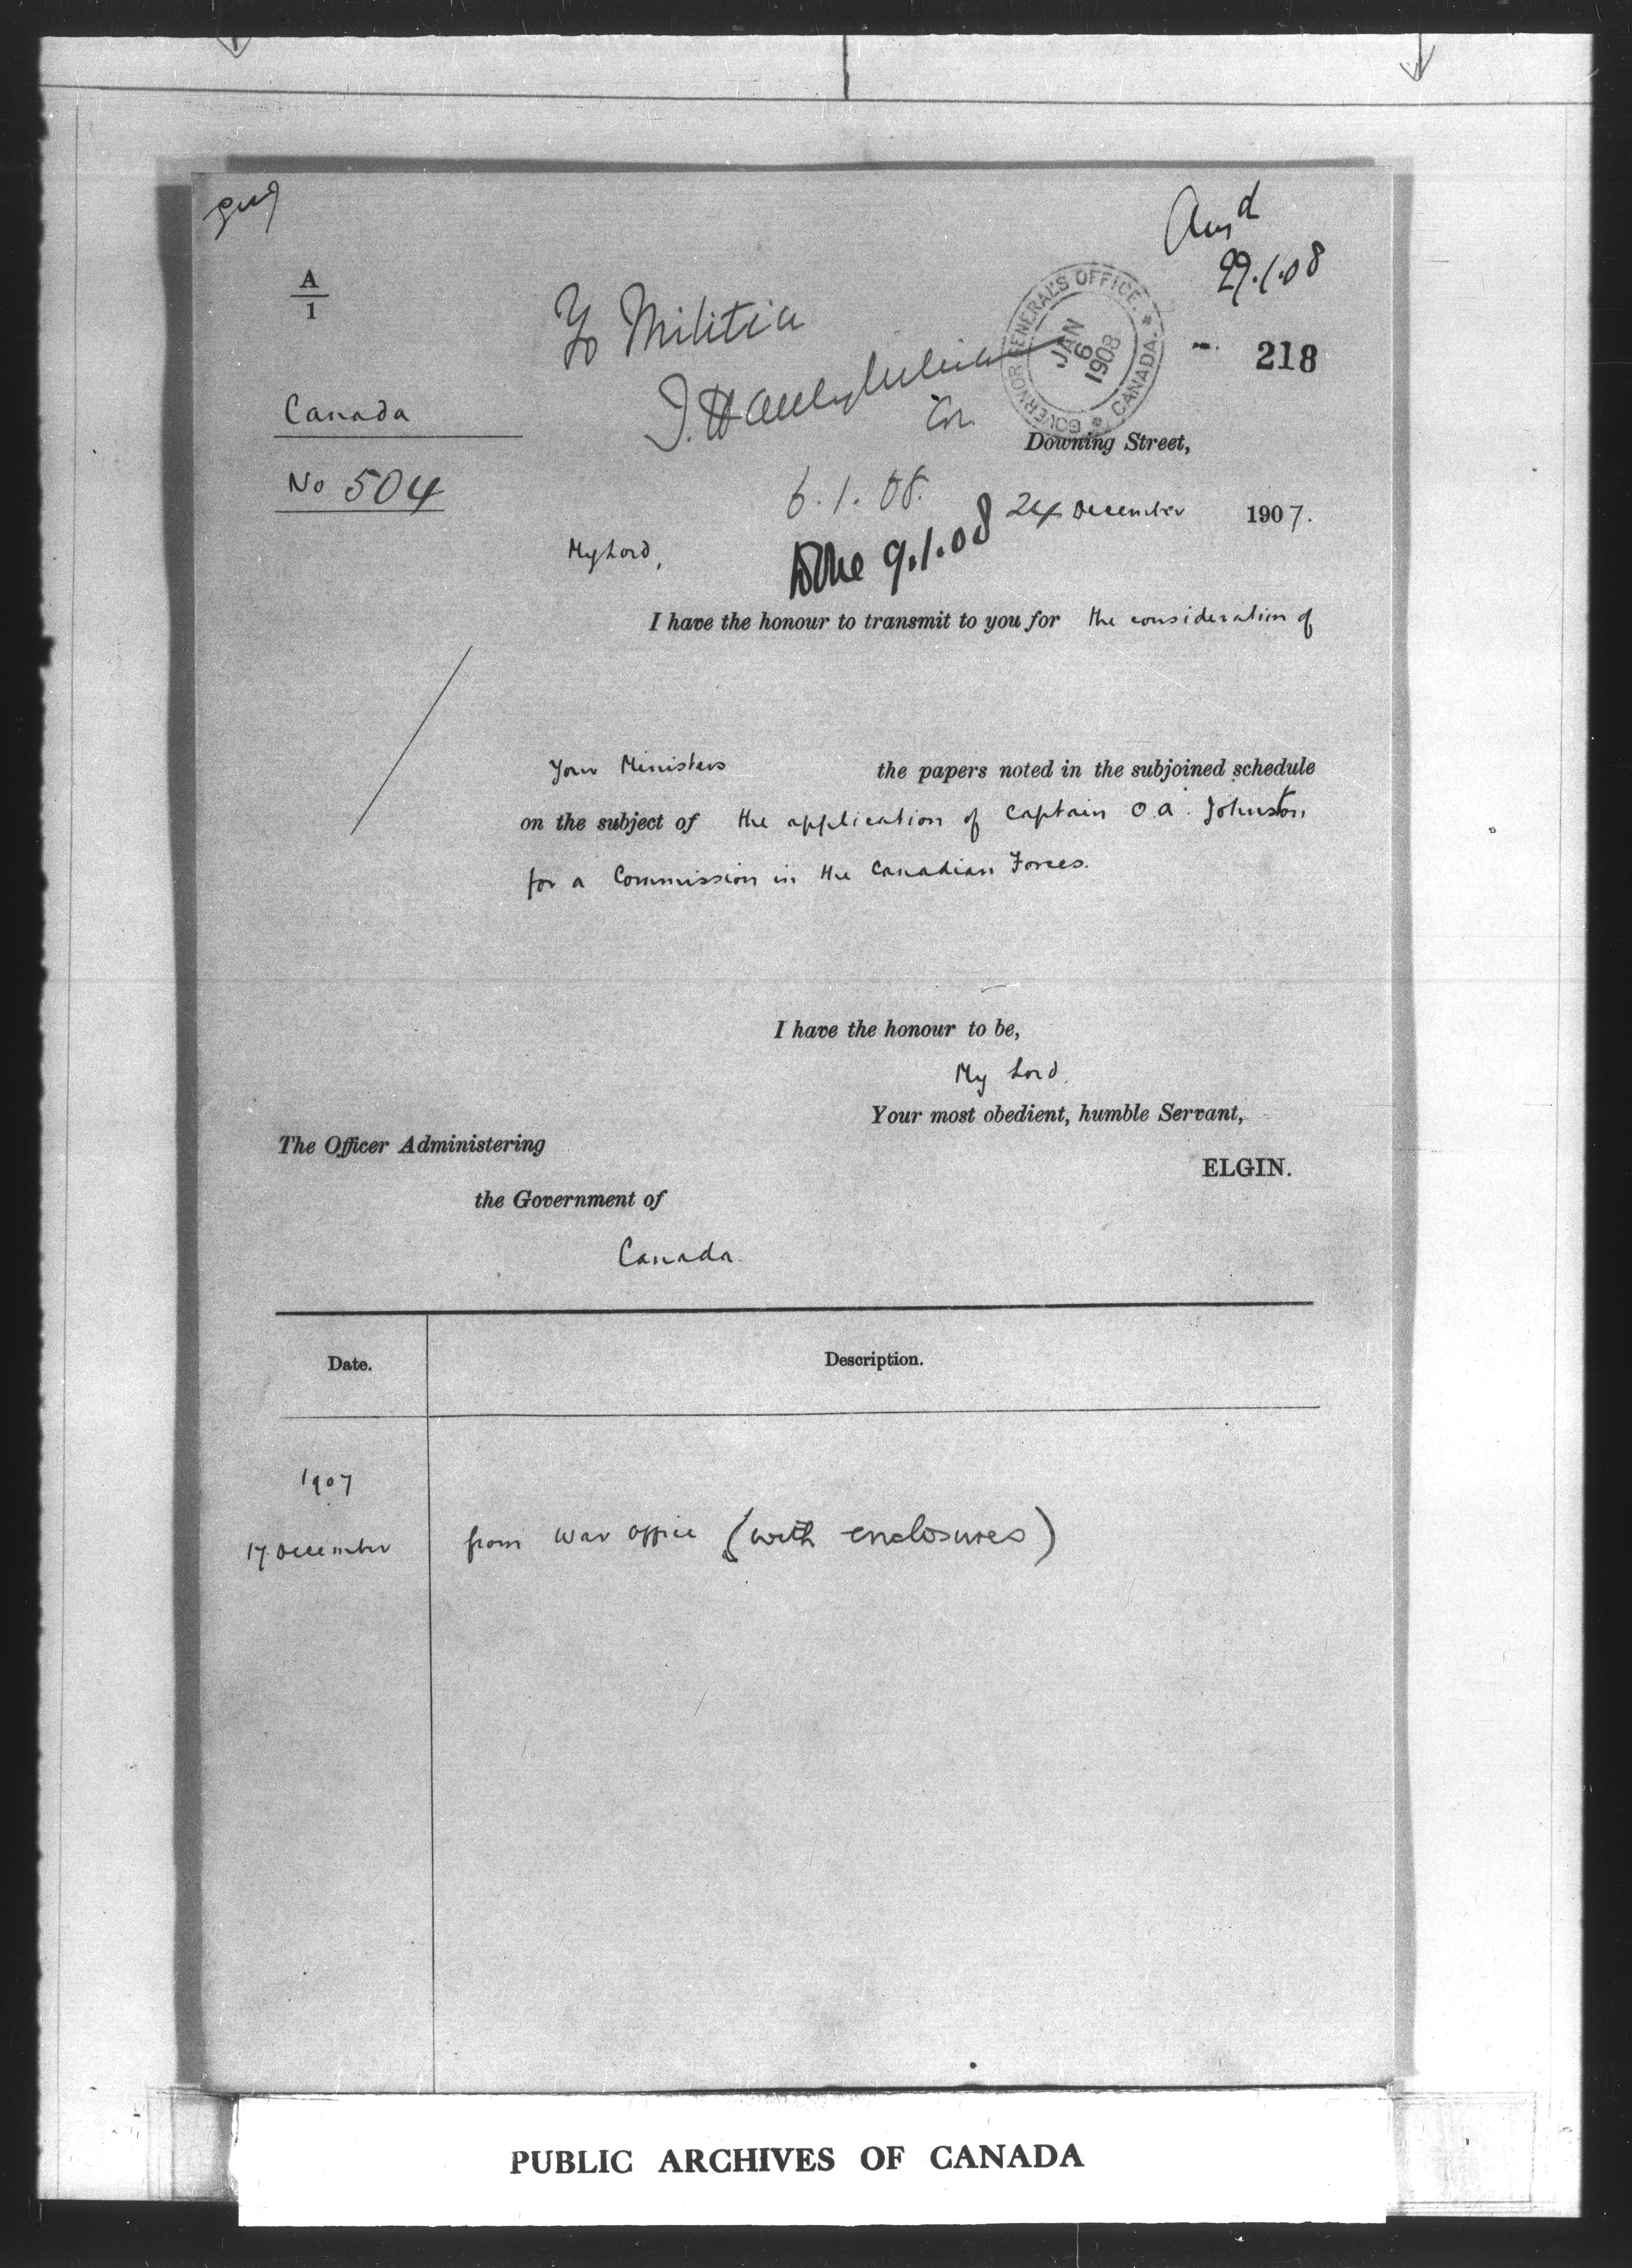 Ansd
29.1.08
A
1
To Militia
GOVERNOR GENERAL'S OFFICE. * CANADA. *
JAN
6
1908
218
Canada
Downing Street,
No 504
6.1.08.
24 December 1907.
My Lord,
Done 9.1.08
I have the honour to transmit to you for the consideration of
Your Ministers the papers noted in the subjoined schedule
on the subject of the application of Captain O.A. Johnston
for a Commission in the Canadian Forces.
I have the honour to be,
My Lord,
Your most obedient, humble Servant,
The Officer Administering
ELGIN.
the Government of
Canada.
Date. Description.
1907
17 December from War Office (with enclosures)
PUBLIC ARCHIVES OF CANADA